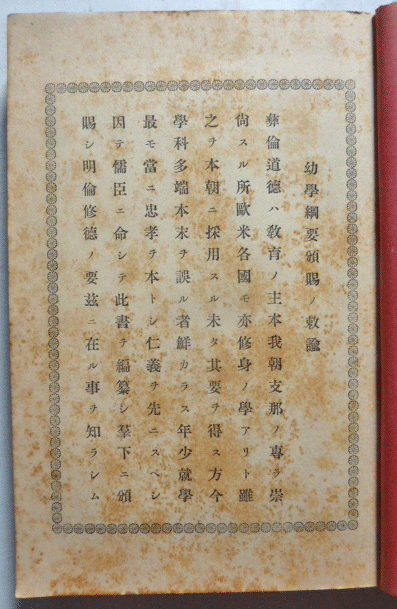 幼學綱要頒賜ノ敕諭
彝倫道德ハ敎育ノ主本我朝支那ノ專ラ崇
尙スル所歐米各國モ亦修身ノ學アリト雖
之ヲ本朝ニ採用スル未タ其要ヲ得ス方今
學科多端本末ヲ誤ル者鮮カラス年少就學
最モ當ニ忠孝ヲ本トシ仁義ヲ先ニスヘシ
因テ儒臣ニ命シテ此書ヲ編纂シ羣下ニ頒
賜シ明倫修德ノ要玆ニ在ル事ヲ知ラシム